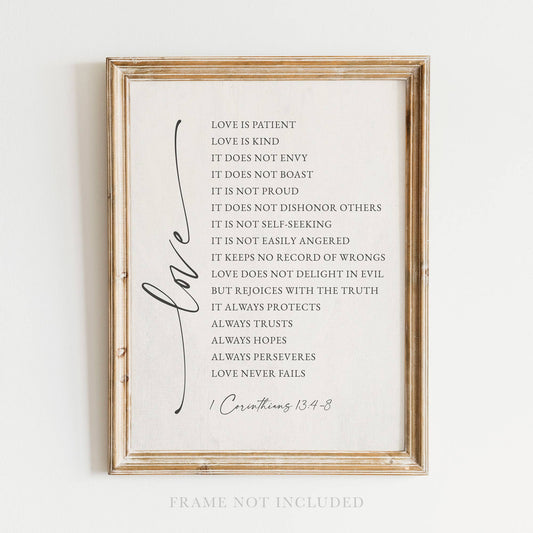 love
LOVE IS PATIENT
LOVE IS KIND
IT DOES NOT ENVY
IT DOES NOT BOAST
IT IS NOT PROUD
IT DOES NOT DISHONOR OTHERS
IT IS NOT SELF-SEEKING
IT IS NOT EASILY ANGERED
IT KEEPS NO RECORD OF WRONGS
LOVE DOES NOT DELIGHT IN EVIL
BUT REJOICES WITH THE TRUTH
IT ALWAYS PROTECTS
ALWAYS TRUSTS
ALWAYS HOPES
ALWAYS PERSEVERES
LOVE NEVER FAILS
1 Corinthians 13:4-8
FRAME NOT INCLUDED